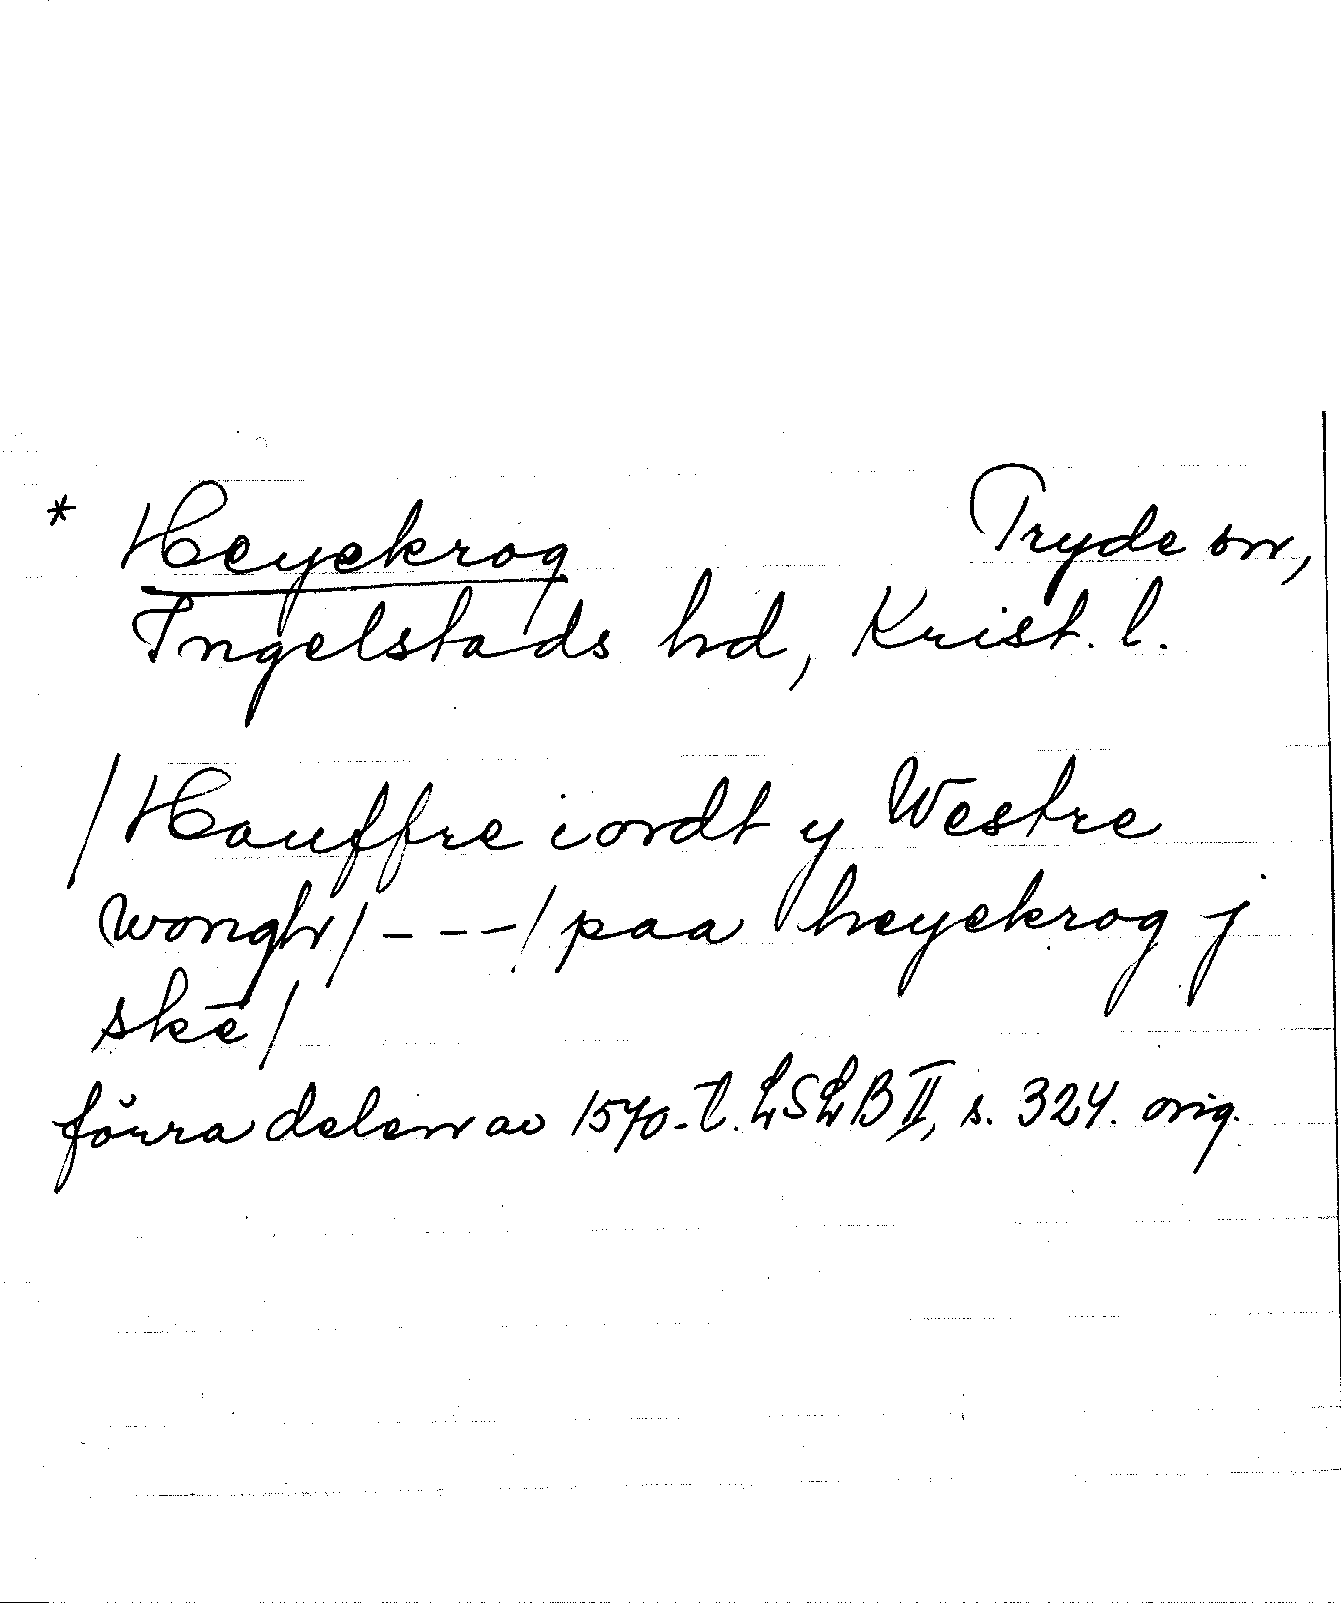 * Heyekrog Tryde sn,
Ingelstads hd, Krist. l.
/Hauffre iordt y Westre
wongh/---/paa heyekrog j
skē/
förra delen av 1570-t. LSLB II, s. 324. orig.